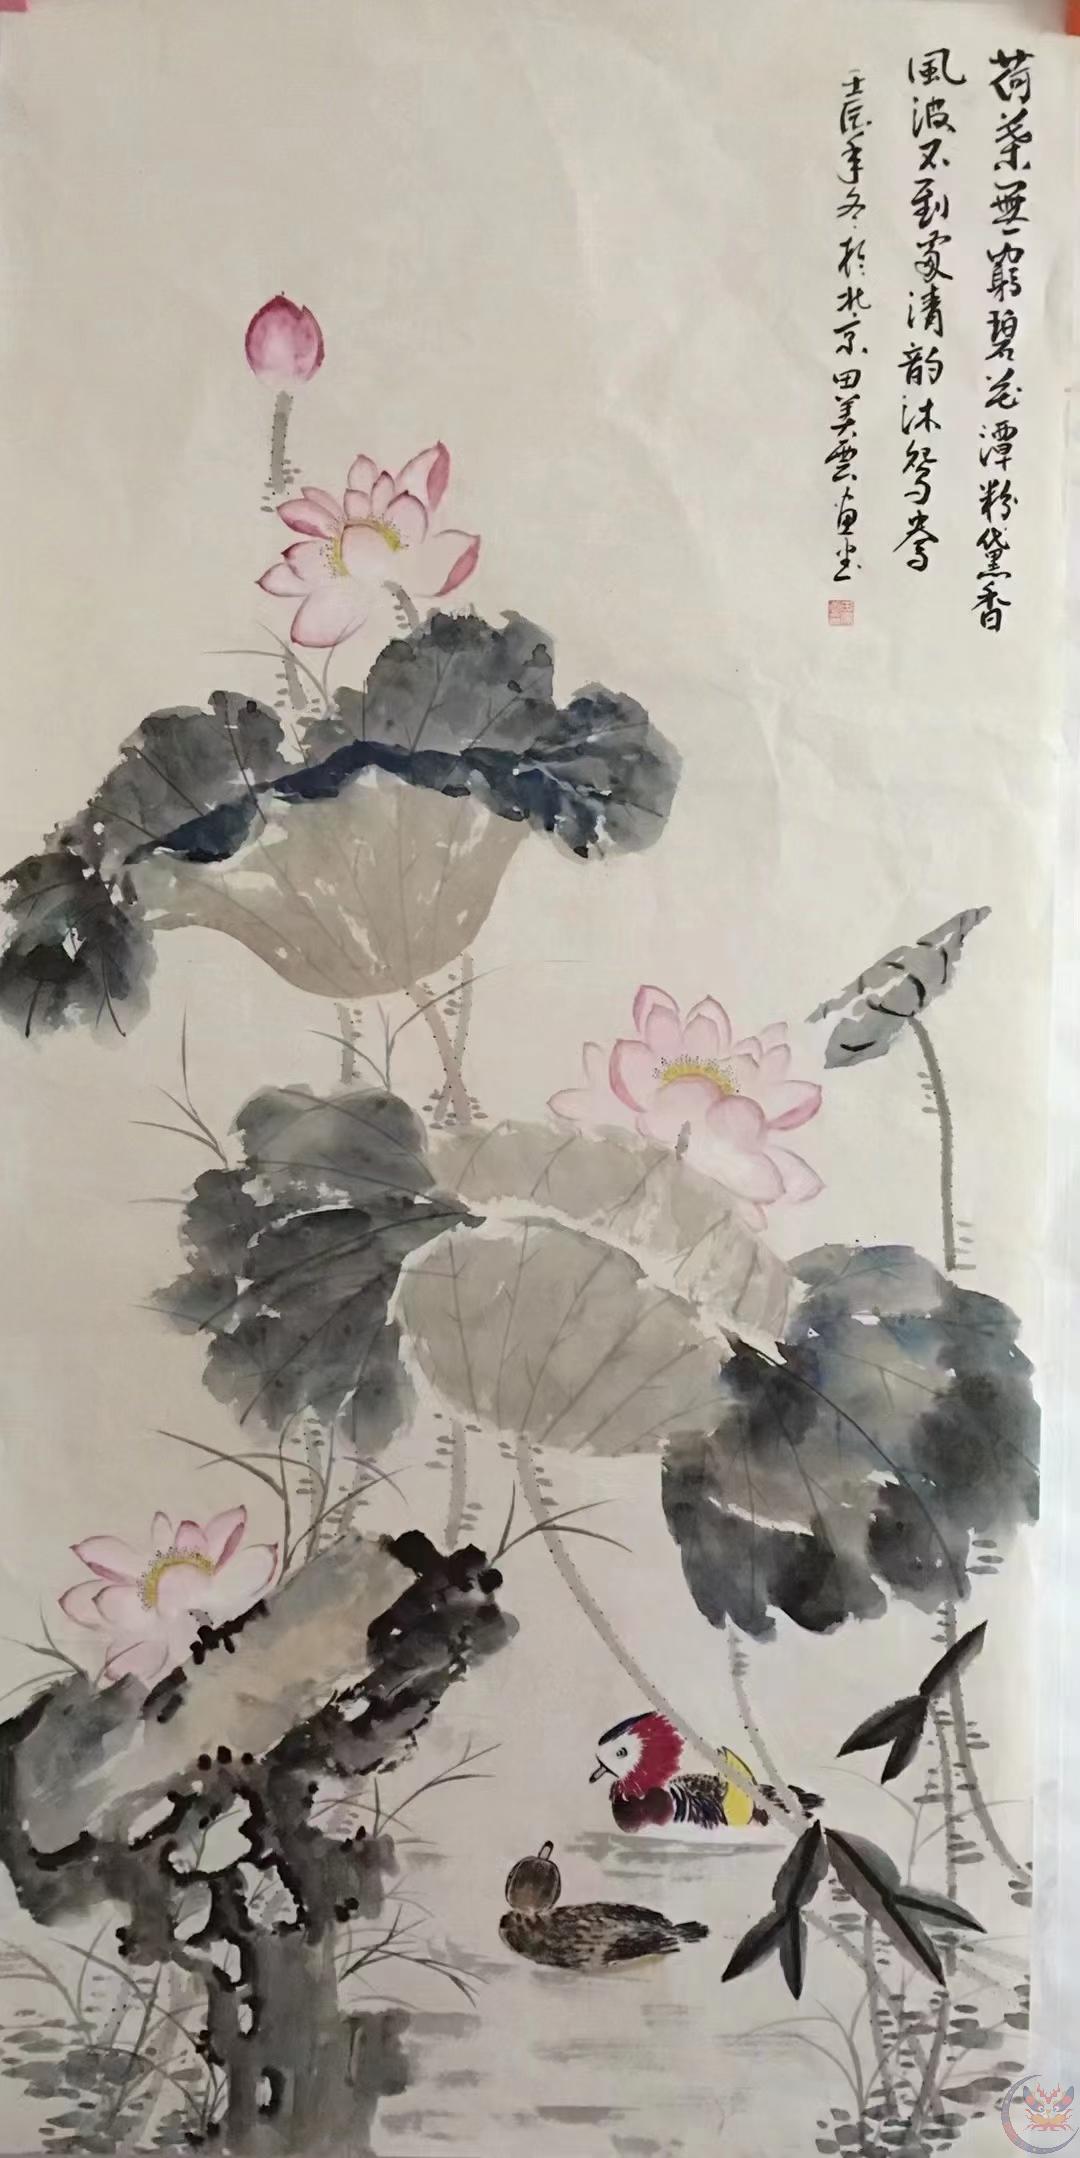 荷葉無窮碧花潭粉黛香
風波不到處清韵沐鴛鴦
壬辰年冬於北京田美雲畫